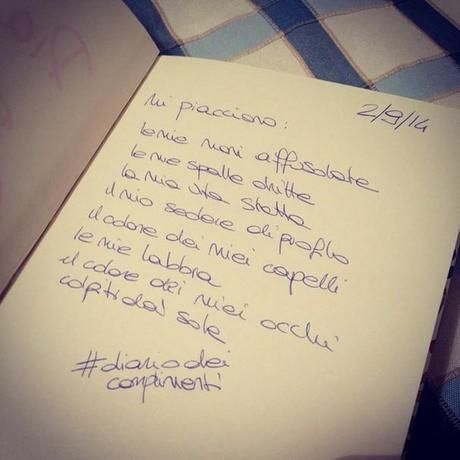 2/9/14
Mi piacciono:
le mie mani affusolate
le mie spalle dritte
la mia vita stretta
il mio sedere di profilo
il colore dei miei capelli
le mie labbra
il colore dei miei occhi
colpiti dal sole
#diariodei
complimenti